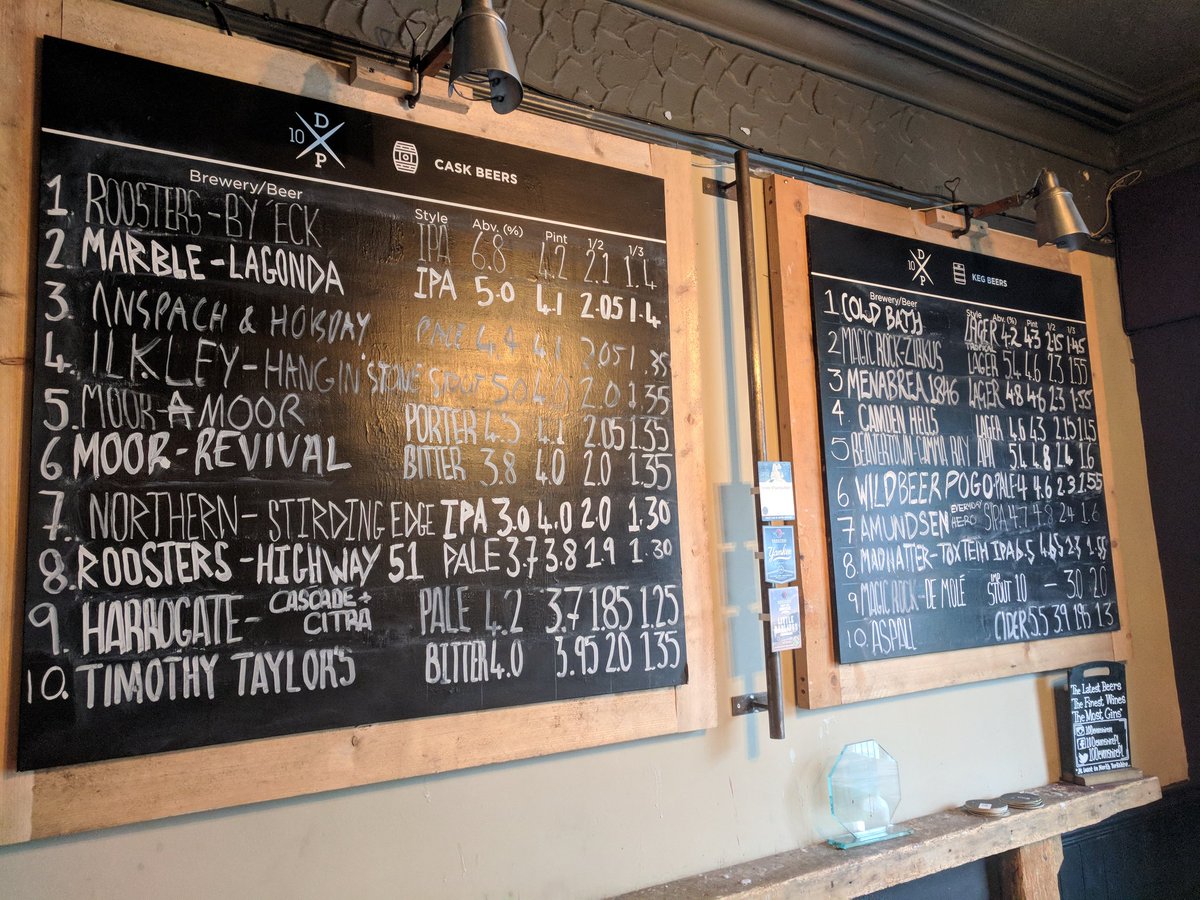 D
10
P
CASK BEERS
Brewery/Beer Style Abv. (%) Pint 1/2 1/3
1. ROOSTERS-BY 'ECK IPA 6.8 4.2 2.1 1.4
2. MARBLE-LAGONDA IPA 5.0 4.1 2.05 1.4
3. ANSPACH & HOBDAY. PALE 4.4 4.1 2.05 1.35
4. ILKLEY-HANGIN' STONE STOUT 5.0 4.0 2.0 1.35
5. MOOR-A MOOR PORTER 4.5 4.1 2.05 1.35
6 MOOR-REVIVAL BITTER 3.8 4.0 2.0 1.35
7. NORTHERN-STIRDING EDGE IPA 3.0 4.0 2.0 1.30
8. ROOSTERS-HIGHWAY 51 PALE 3.7 3.8 1.9 1.30
9. HARROGATE- CASCADE + CITRA PALE 4.2 3.7 1.85 1.25
10. TIMOTHY TAYLOR'S BITTER 4.0 3.95 2.0 1.35
D
10
P
KEG BEERS
Brewery/Beer Style Abv. (%) Pint 1/2 1/3
1 COLD BATH LAGER 4.2 4.3 2.15 1.45
2 MAGIC ROCK-ZIRKUS LAGER 5.4 4.6 2.3 1.55
3 MENABREA 1846 LAGER 4.8 4.6 2.3 1.55
4 CAMDEN HELLS LAGER 4.6 4.3 2.15 1.45
5 BEAVERTOWN-GAMMA RAY APA 5.4 4.8 2.4 1.6
6 WILD BEER POGO-PALE-4 4.6 2.3 1.55
7 AMUNDSEN EVERYDAY HERO SIPA 4.7 4.8 2.4 1.6
8 MADHATTER-TOXTETH IPA 6.5 4.65 2.3 1.55
9 MAGIC ROCK-DE MOLÉ IMP STOUT 10 - 3.0 2.0
10 ASPALL CIDER 5.5 3.9 1.95 1.3
The Latest Beers
The Finest Wines
The Most Gins*